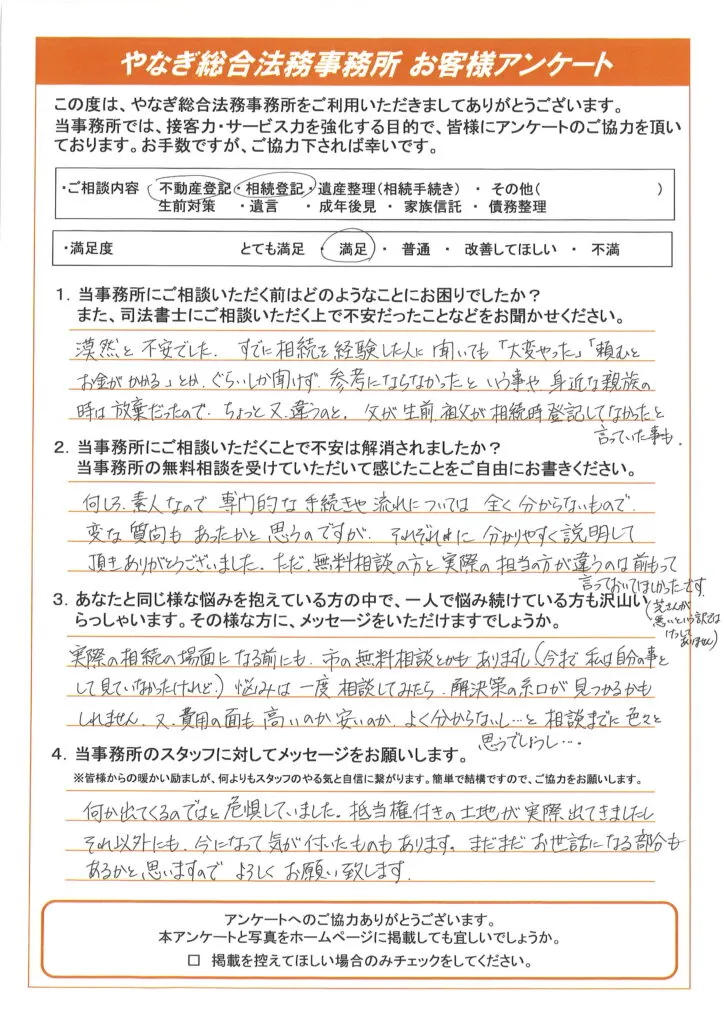 やなぎ総合法務事務所 お客様アンケート
この度は、やなぎ総合法務事務所をご利用いただきましてありがとうございます。
当事務所では、接客力・サービス力を強化する目的で、皆様にアンケートのご協力を頂い
ております。お手数ですが、ご協力下されば幸いです。
・ご相談内容 不動産登記・相続登記・遺産整理(相続手続き) ・ その他( )
生前対策 ・遺言 ・ 成年後見 ・ 家族信託 ・ 債務整理
・満足度 とても満足 ・ 満足 ・ 普通 ・ 改善してほしい ・ 不満
1．当事務所にご相談いただく前はどのようなことにお困りでしたか？
また、司法書士にご相談いただく上で不安だったことなどをお聞かせください。
漠然と不安でした。すでに相続を経験した人に聞いても「大変やった」「頼むと
お金がかかる」とか、ぐらいしか聞けず、参考にならなかったという事や、身近な親族の
時は放棄だったので、ちょっと又、違うのと、父が生前、祖父が相続時登記してなかったと
言っていた事も。
2．当事務所にご相談いただくことで不安は解消されましたか？
当事務所の無料相談を受けていただいて感じたことをご自由にお書きください。
何しろ、素人なので専門的な手続きや流れについては全く分からないもので、
変な質向もあったかと思うのですが、それぞれに分かりやすく説明して
頂きありがとうございました。ただ、無料相談の方と実際の担当の方が違うのは前もって
言っておいてほしかったです。
(芝さんが
悪いという訳では
けっして
ありません)
3．あなたと同じ様な悩みを抱えている方の中で、一人で悩み続けている方も沢山い
らっしゃいます。その様な方に、メッセージをいただけますでしょうか。
実際の相続の場面になる前にも、市の無料相談とかもありますし(今まで私は自分の事と
して見ていなかったけれど)悩みは一度相談してみたら、解決策の糸口が見つかるかも
しれません。又、費用の面も高いのか安いのか、よく分からないし…と相談までに色々と
思うでしょうし…。
4．当事務所のスタッフに対してメッセージをお願いします。
※皆様からの暖かい励ましが、何よりもスタッフのやる気と自信に繋がります。簡単で結構ですので、ご協力をお願いします。
何か出てくるのではと危惧していました。抵当権付きの土地が実際出てきましたし
それ以外にも、今になって気が付いたものもあります。まだまだお世話になる部分も
あるかと思いますのでよろしくお願い致します。
アンケートへのご協力ありがとうございます。
本アンケートと写真をホームページに掲載しても宜しいでしょうか。
□ 掲載を控えてほしい場合のみチェックをしてください。